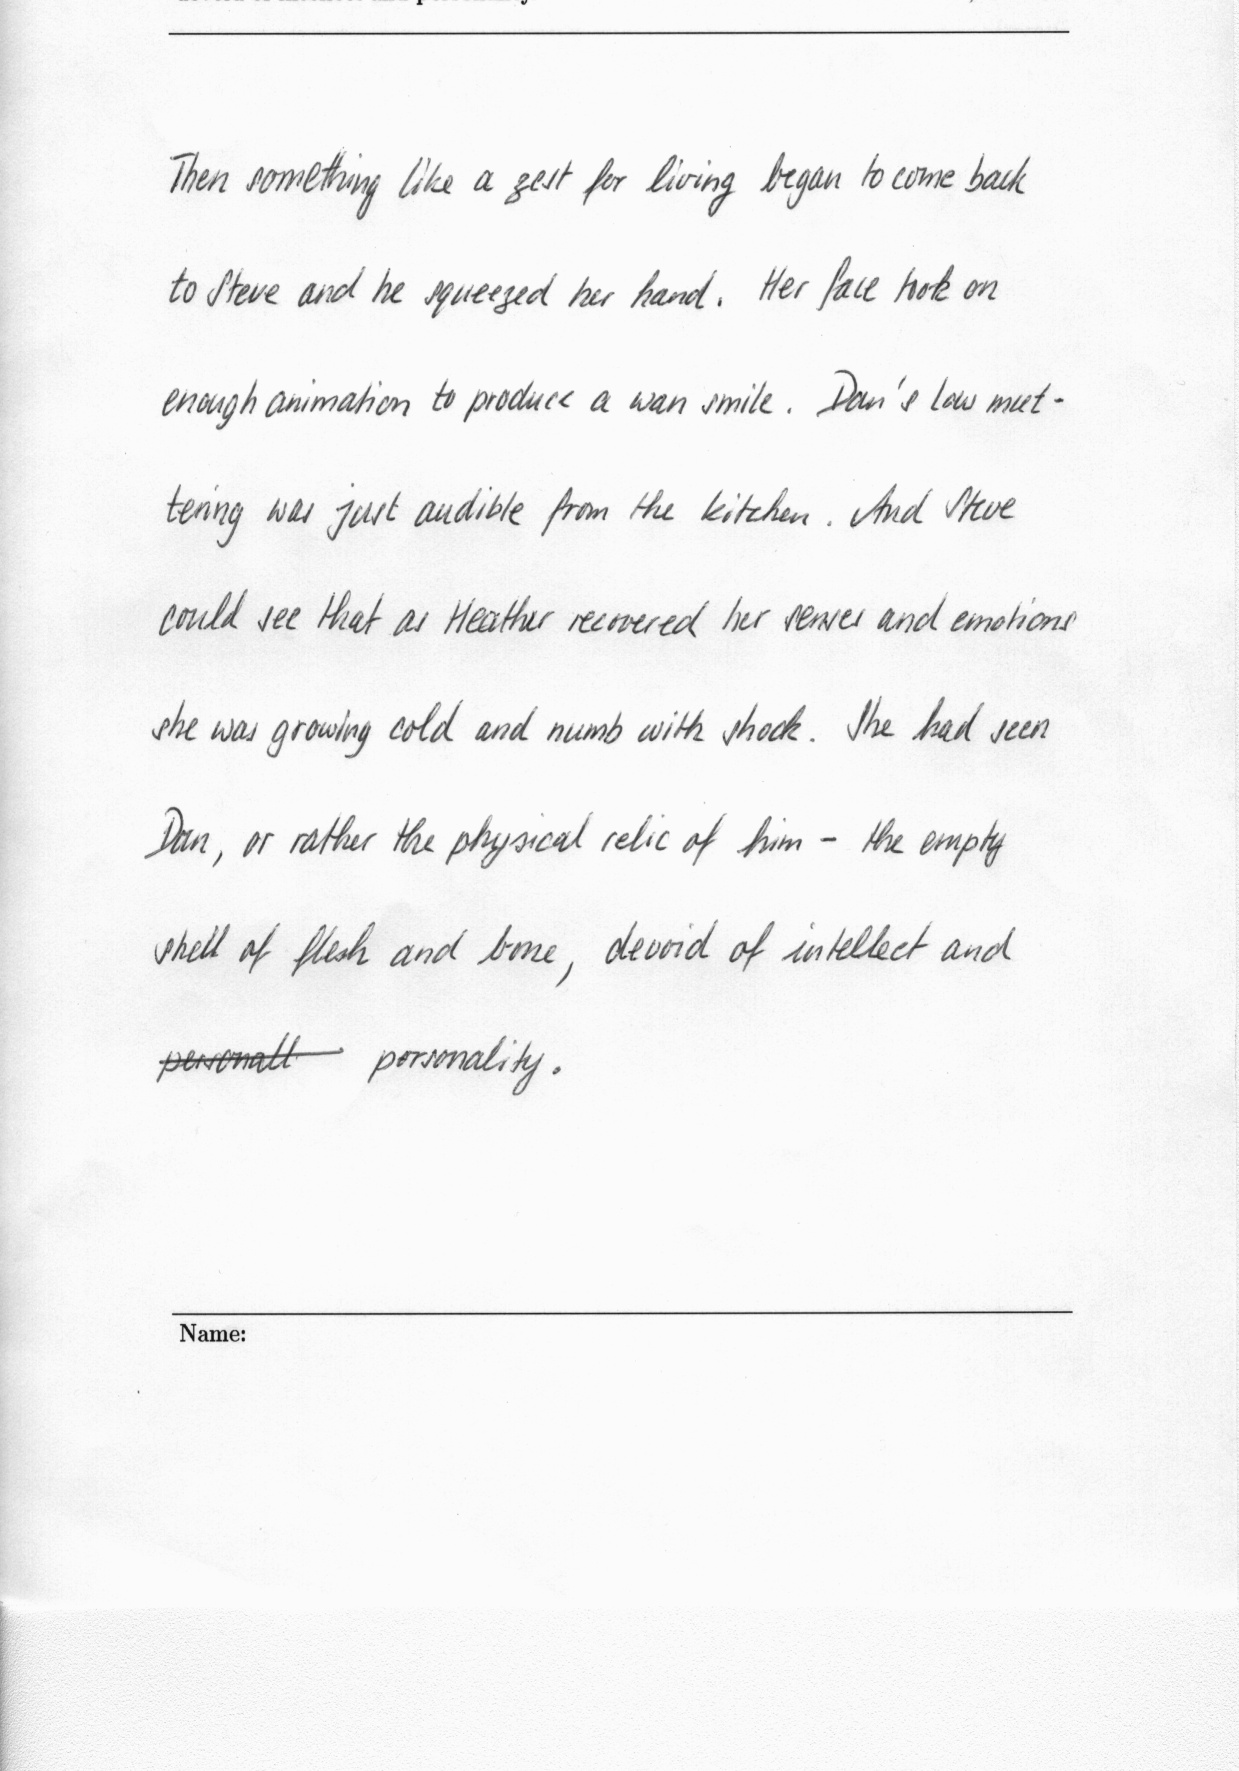 Then something like a zest for living began to come back
to Steve and he squeezed her hand. Her face took on
enough animation to produce a wan smile. Dan's low mut-
tering was just audible from the kitchen. And Steve
could see that as Heather recovered her senses and emotions
she was growing cold and numb with shock. She had seen
Dan, or rather the physical relic of him - the empty
shell of flesh and bone, devoid of intellect and
personall personality.
Name: